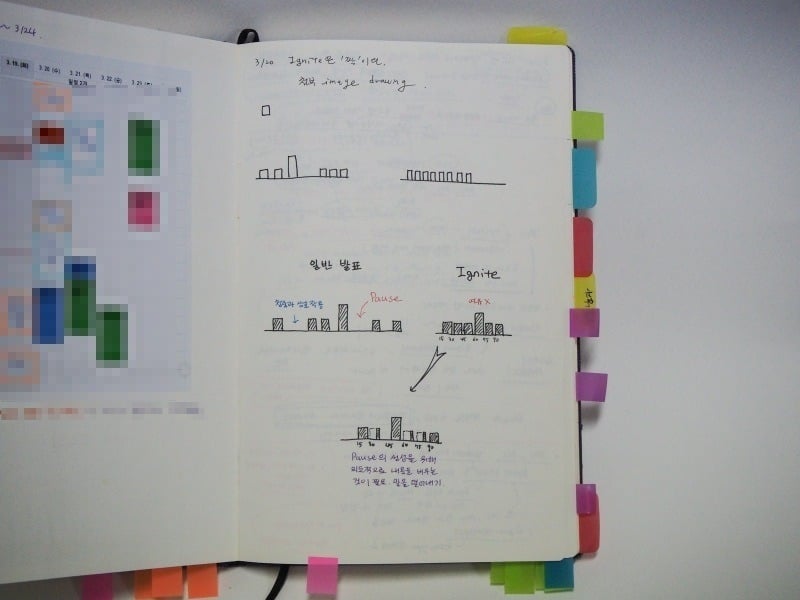 ~ 3/24.
3.19. (화) 3.20 (수) 3.21 (목) 3.22 (금)
3/20 Ignite은 '꽉'이다.
첨부 image drawing.
일반 발표
Ignite
청중과 상호작용
Pause
여유 X
15 30 45 60 75 90
15 30 45 60 75 90
Pause의 생성을 위해
의도적으로 내용을 비우는
것이 필요. 말을 덜어내기.